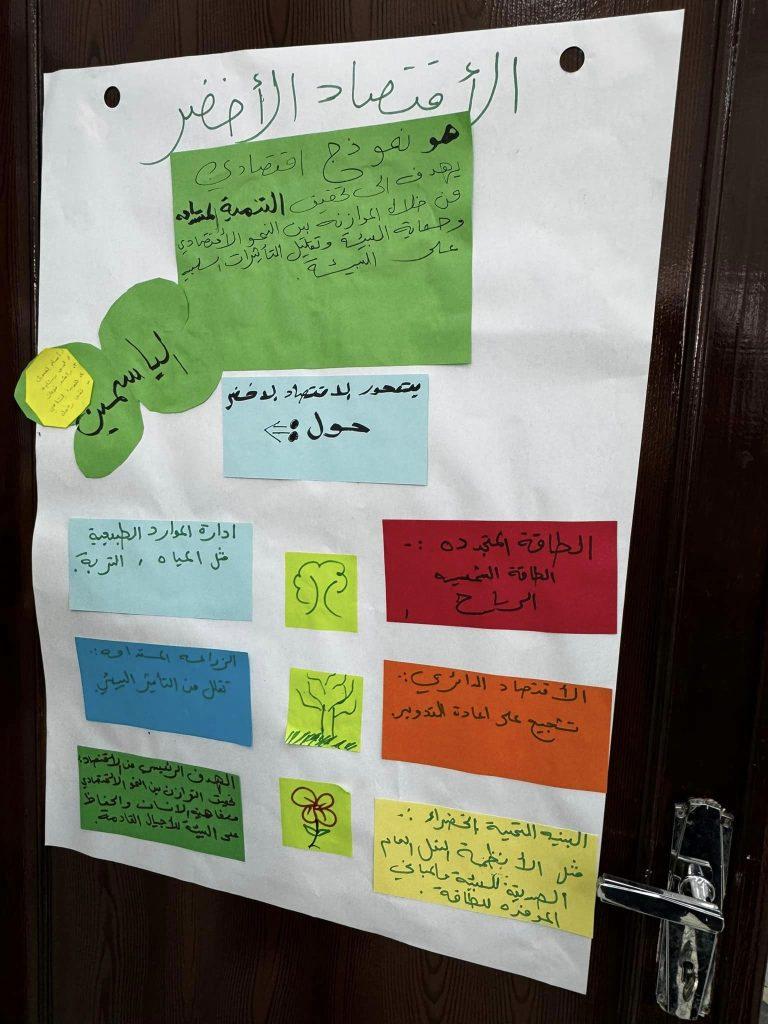 الأقتصاد الأخضر
هو نموذج اقتصادي
يهدف الى تحقيق التنمية
من خلال الموازنة بين النمو الأقتصادي
وحماية البيئة وتقليل التأثيرات
على البيئة.
الياسمين
يتمحور الاقتصاد الاخضر
حول :
الطاقة المتجدده :-
الطاقة الشمسيه
الرياح
ادارة الموارد الطبيعية
مثل المياه ، التربة.
الأقتصاد الدائري :-
تشجيع على اعادة التدوير.
الزراعه المستدامه :-
تقلل من التأثير البيئي.
البنيه التحتية الخضراء :-
مثل الأنظمة النقل العام
الصديقة للبيئة والمباني
الموفره للطاقة.
الهدف الرئيسي من الأقتصاد:
التوازن بين النمو الأقتصادي
الانسان والحفاظ
على البيئة للأجيال القادمة.